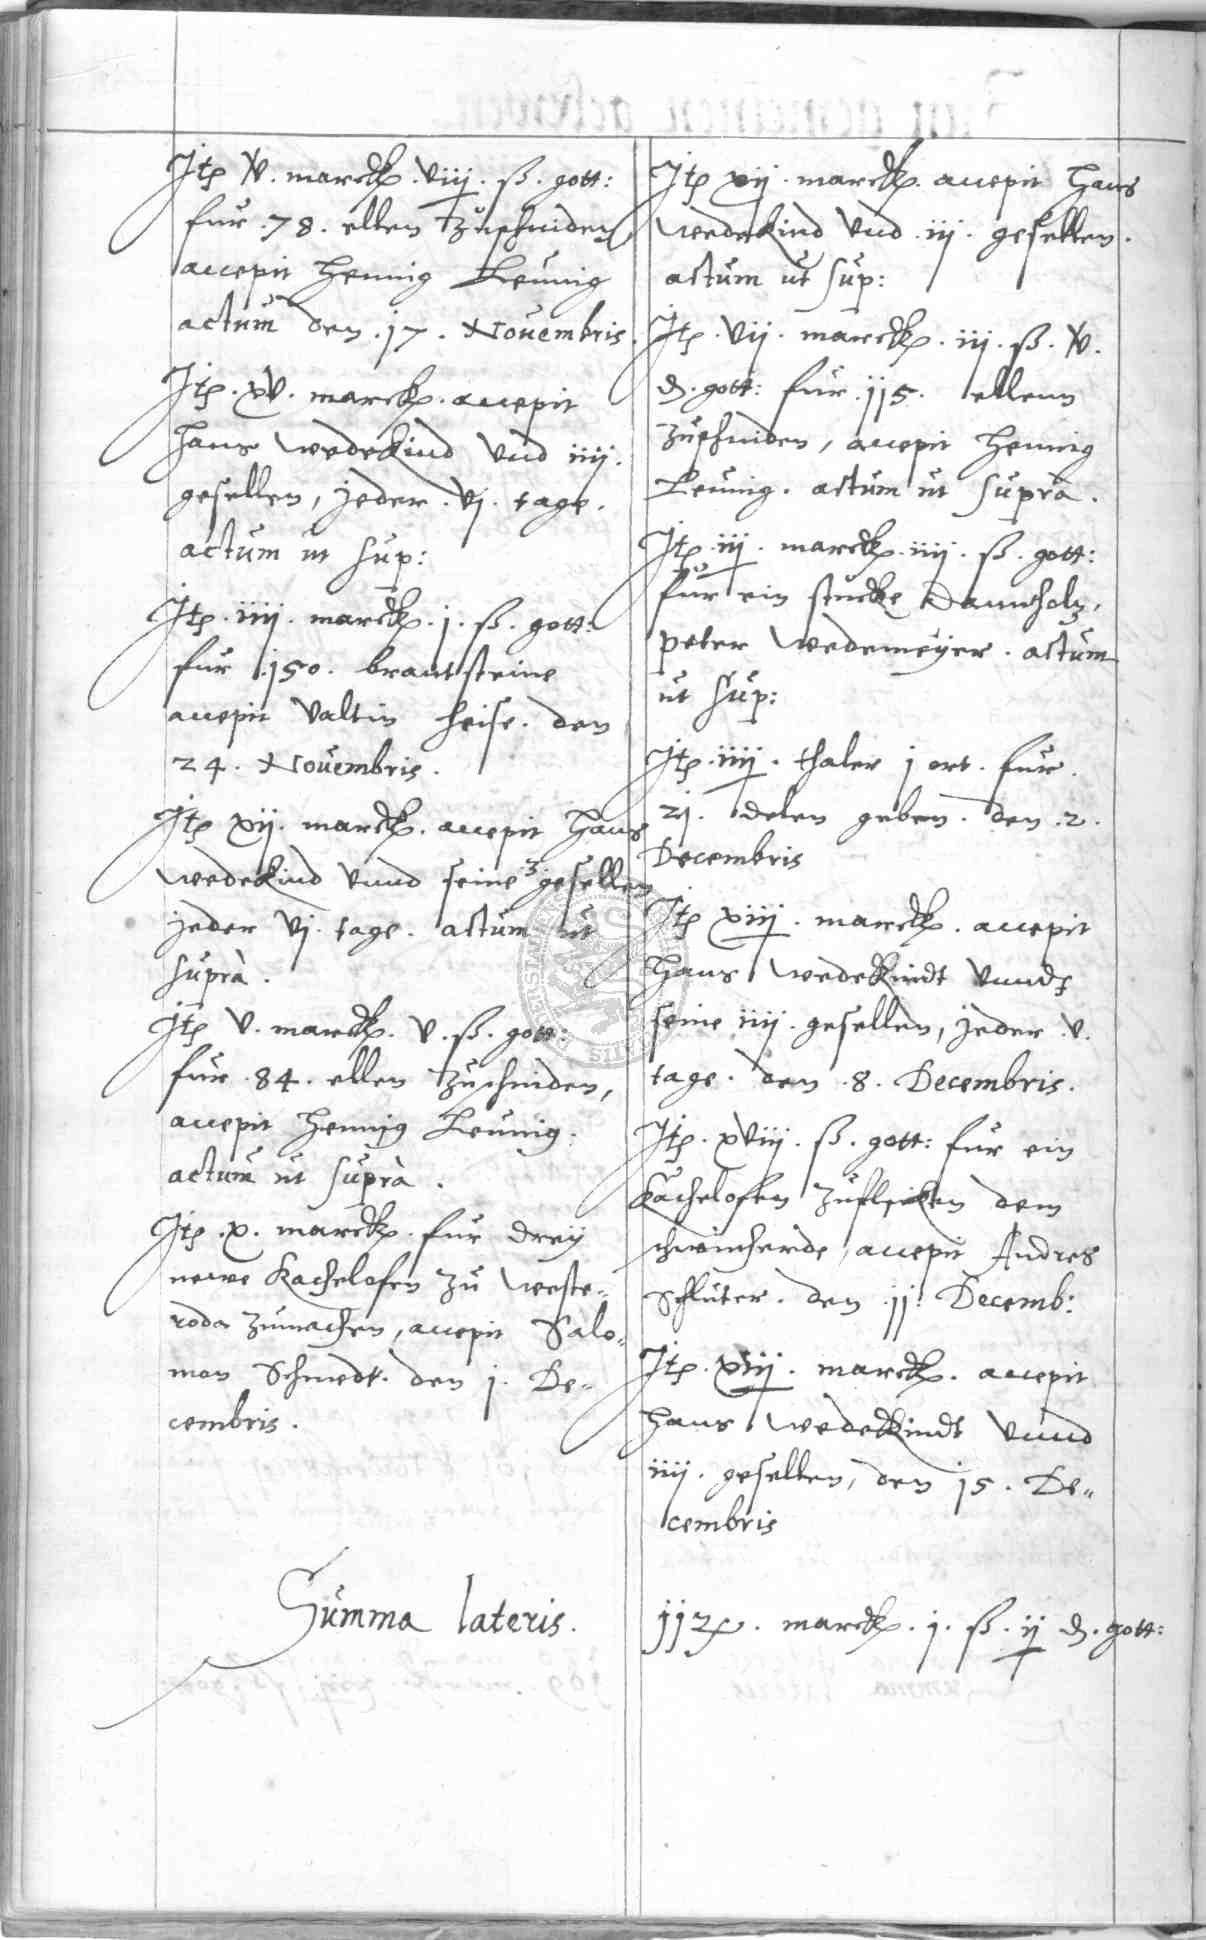 Itē v. marck. viij. ß. gott:
fur .78. ellen zuschniden
accepit Hennig Leunig
actum den .17. Nouembris.
Itē. xv. marck. accepit
Hans Wedekind vnd iiij.
gesellen, jeder .vj. tage.
actum ut sup:
Itē. iiij. marck. j. ß. gott:
fur .150. brantsteine
accepit Valtin Heise. den
24. Nouembris.
Itē xij. marck. accepit Hans
Wedekind vnnd seine 3 gesellen
jeder vj. tage. actum ut
suprà.
Itē v. marck. v. ß. gott:
fur .84. ellen zuschniden,
accepit Hennig Leunig.
actum ut suprà.
Itē .x. marck. fur drey
newe Kachelofen zu Weste-
roda zumachen, accepit Salo-
mon Schmedt. den j. De-
cembris.
Itē xij. marck. accepit Hans
Wedekind vnd .iij. gesellen.
actum ut sup:
Itē. vij. marck. iij. ß. v.
d. gott: fur .115. ellenn
zuschniden, accepit Hennig
Leunig. actum ut suprà.
Itē. iij. marck. iiij. ß. gott:
fur ein stucke Dannholz,
peter Wedemeyer. actum
ut sup:
Itē. iiij. thaler j ort. fur
21. delen geben. den .2.
Decembris
Itē xiij. marck. accepit
Hans Wedekindt vnnd
seine iiij. gesellen, jeder .v.
tage. den .8. Decembris.
Itē. xviij. ß. gott: fur ein
Kachelofen zuflicken dem
schweinherde, accepit Andres
Schluter. den 11. Decemb:
Itē. xiij. marck. accepit
Hans Wedekindt vnnd
iiij. gesellen, den 15. De-
cembris
Summa lateris. marck. j. ß. ij d. gott: